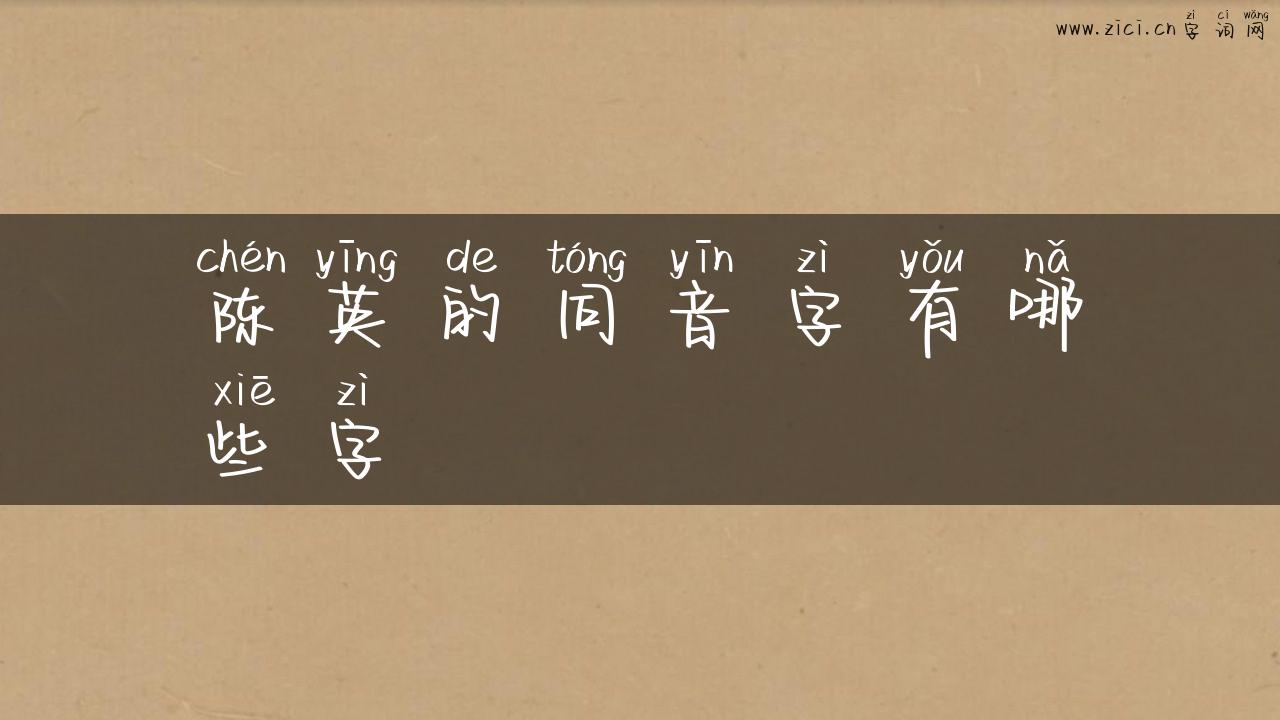 zì cí wǎng
www.zici.cn 字 词 网
chén yīng de tóng yīn zì yǒu nǎ
陈 英 的 同 音 字 有 哪
xiē zì
些 字